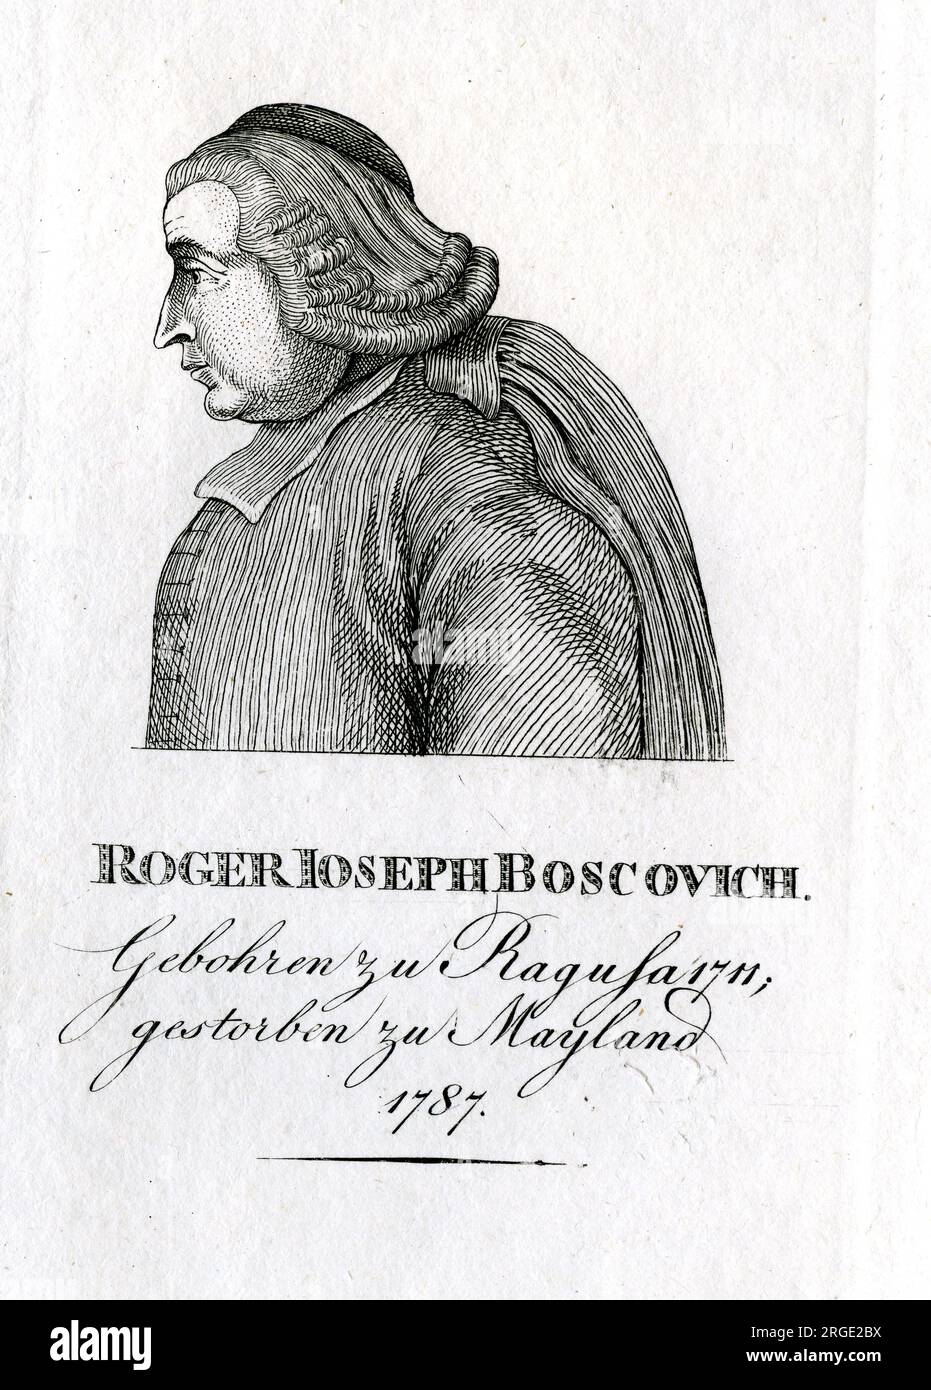 ROGER IOSEPH BOSCOVICH.
Gebohren zu Ragusa 1711;
gestorben zu Mayland
1787.
alamy
alamy
Image ID: 2RGE2BX
www.alamy.com